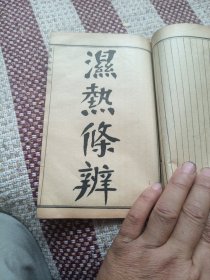 濕熱條辨